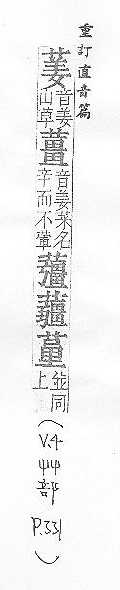 重訂直音篇
葁
音姜
山草
薑
音姜菜名
辛而不葷
並同
上
(V.4 艸部 P.331)